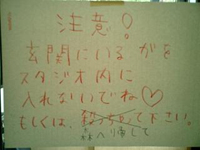 注意!
玄関にいるがを
スタジオ内に
入れないでね♡
もしくは、殺っちゃって下さい。
森へ帰して